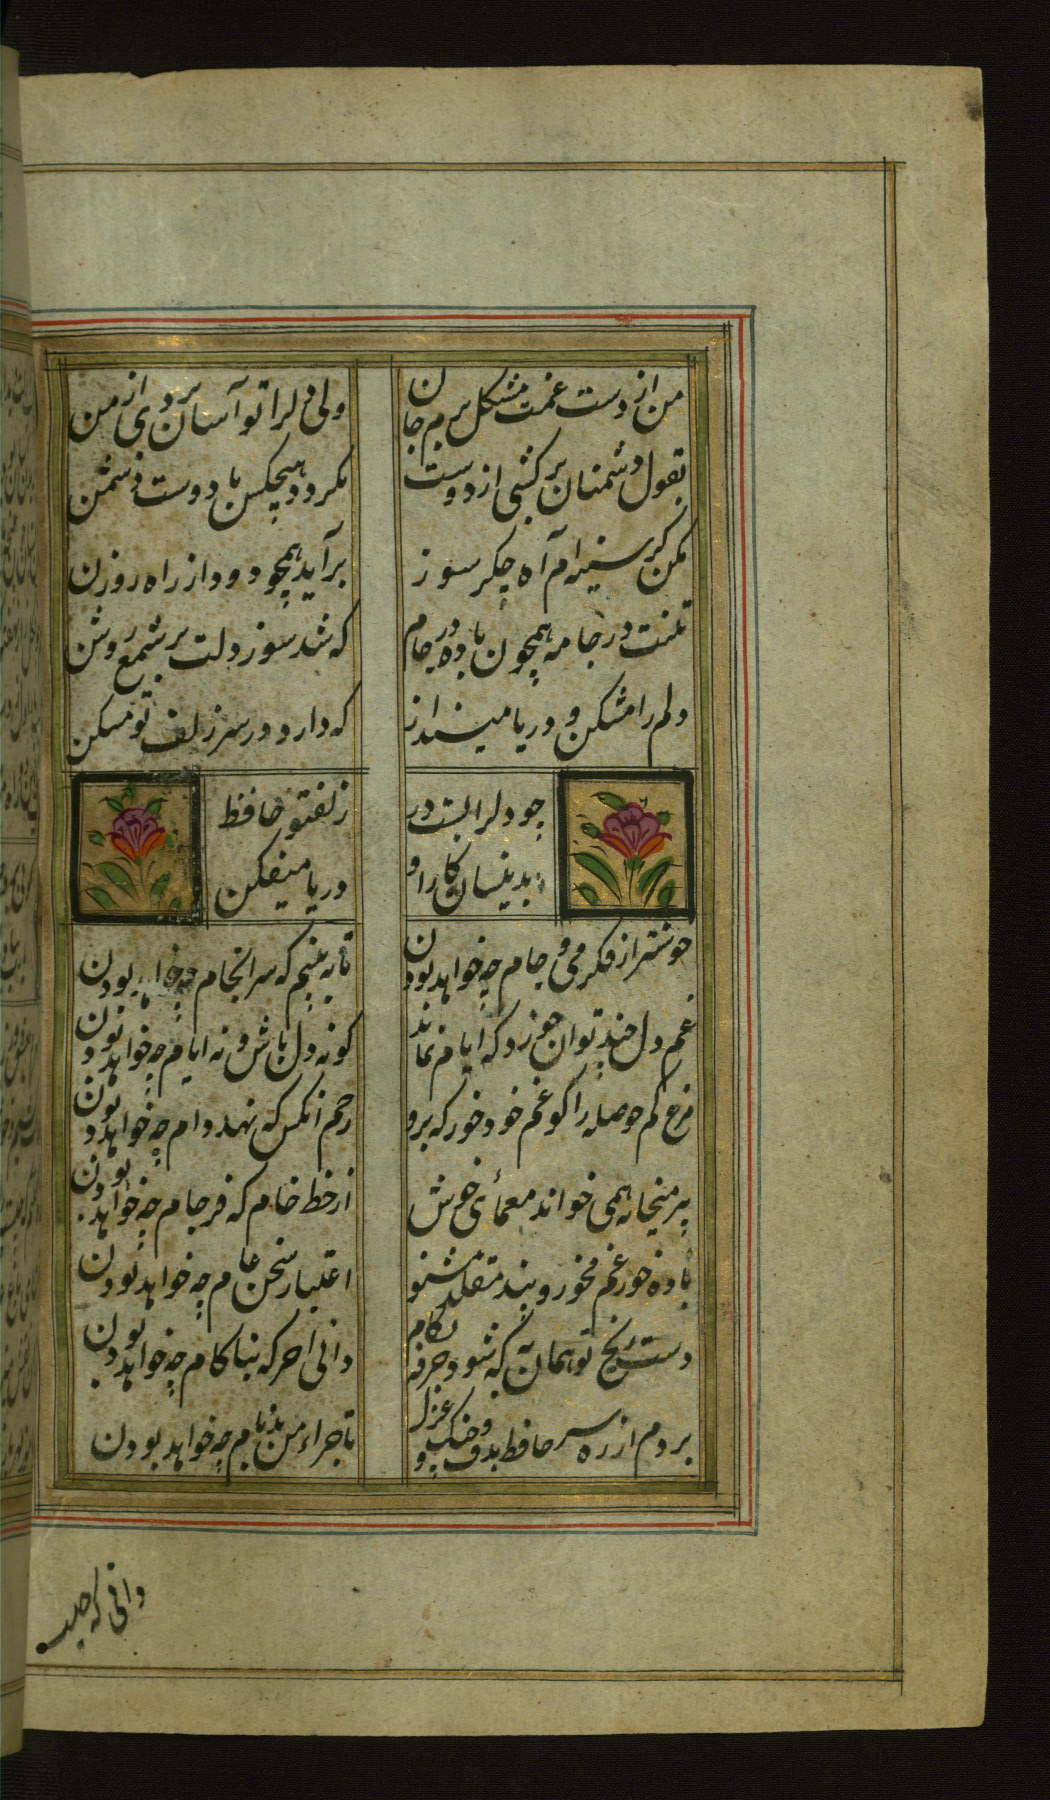 من از دست غمت مشکل برم جان
ولی دلرا تو آسان بردی از من
بقول دشمنان برگشتی از دوست
نکردد هیچکس با دوست دشمن
مکن کز سینه ام آه جگر سوز
برآید همچو دود از راه روزن
تنت در جامه همچون باده در جام
که شد سوز دلت بر شمع روشن
دلم را مشکن و در پا مینداز
که دارد در سر زلف تو مسکن
چو دلرا بست در زلفتو حافظ
بدینسان کار او در پا میفکن
خوشتر از فکر می و جام چه خواهد بودن
تا به بینم که سرانجام چه خواهد بودن
غم دل چند توان خورد که ایام نماند
کو نه دل باش و نه ایام چه خواهد بودن
مرغ کم حوصله را کو غم خود خور که برو
رحم انکس که نهد دام چه خواهد بودن
پیر میخانه همی خواند معمائی خوش
از خط جام که فرجام چه خواهد بودن
باده خور غم مخور و پند مقلد مشنو
اعتبار سخن عام چه خواهد بودن
دست رنج تو همان به که شود صرف بکام
دانی اخر که بناکام چه خواهد بودن
بردم از ره سر حافظ بدف و چنک و غزل
تا جزاء من بدنام چه خواهد بودن
دانی که چیست